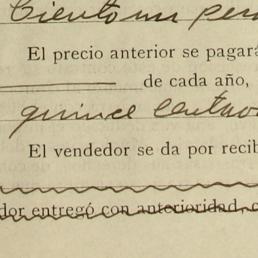 Ciento un pes
El precio anterior se pagará
de cada año,
quince centavo
El vendedor se da por recib
dor entregó con anterioridad, c